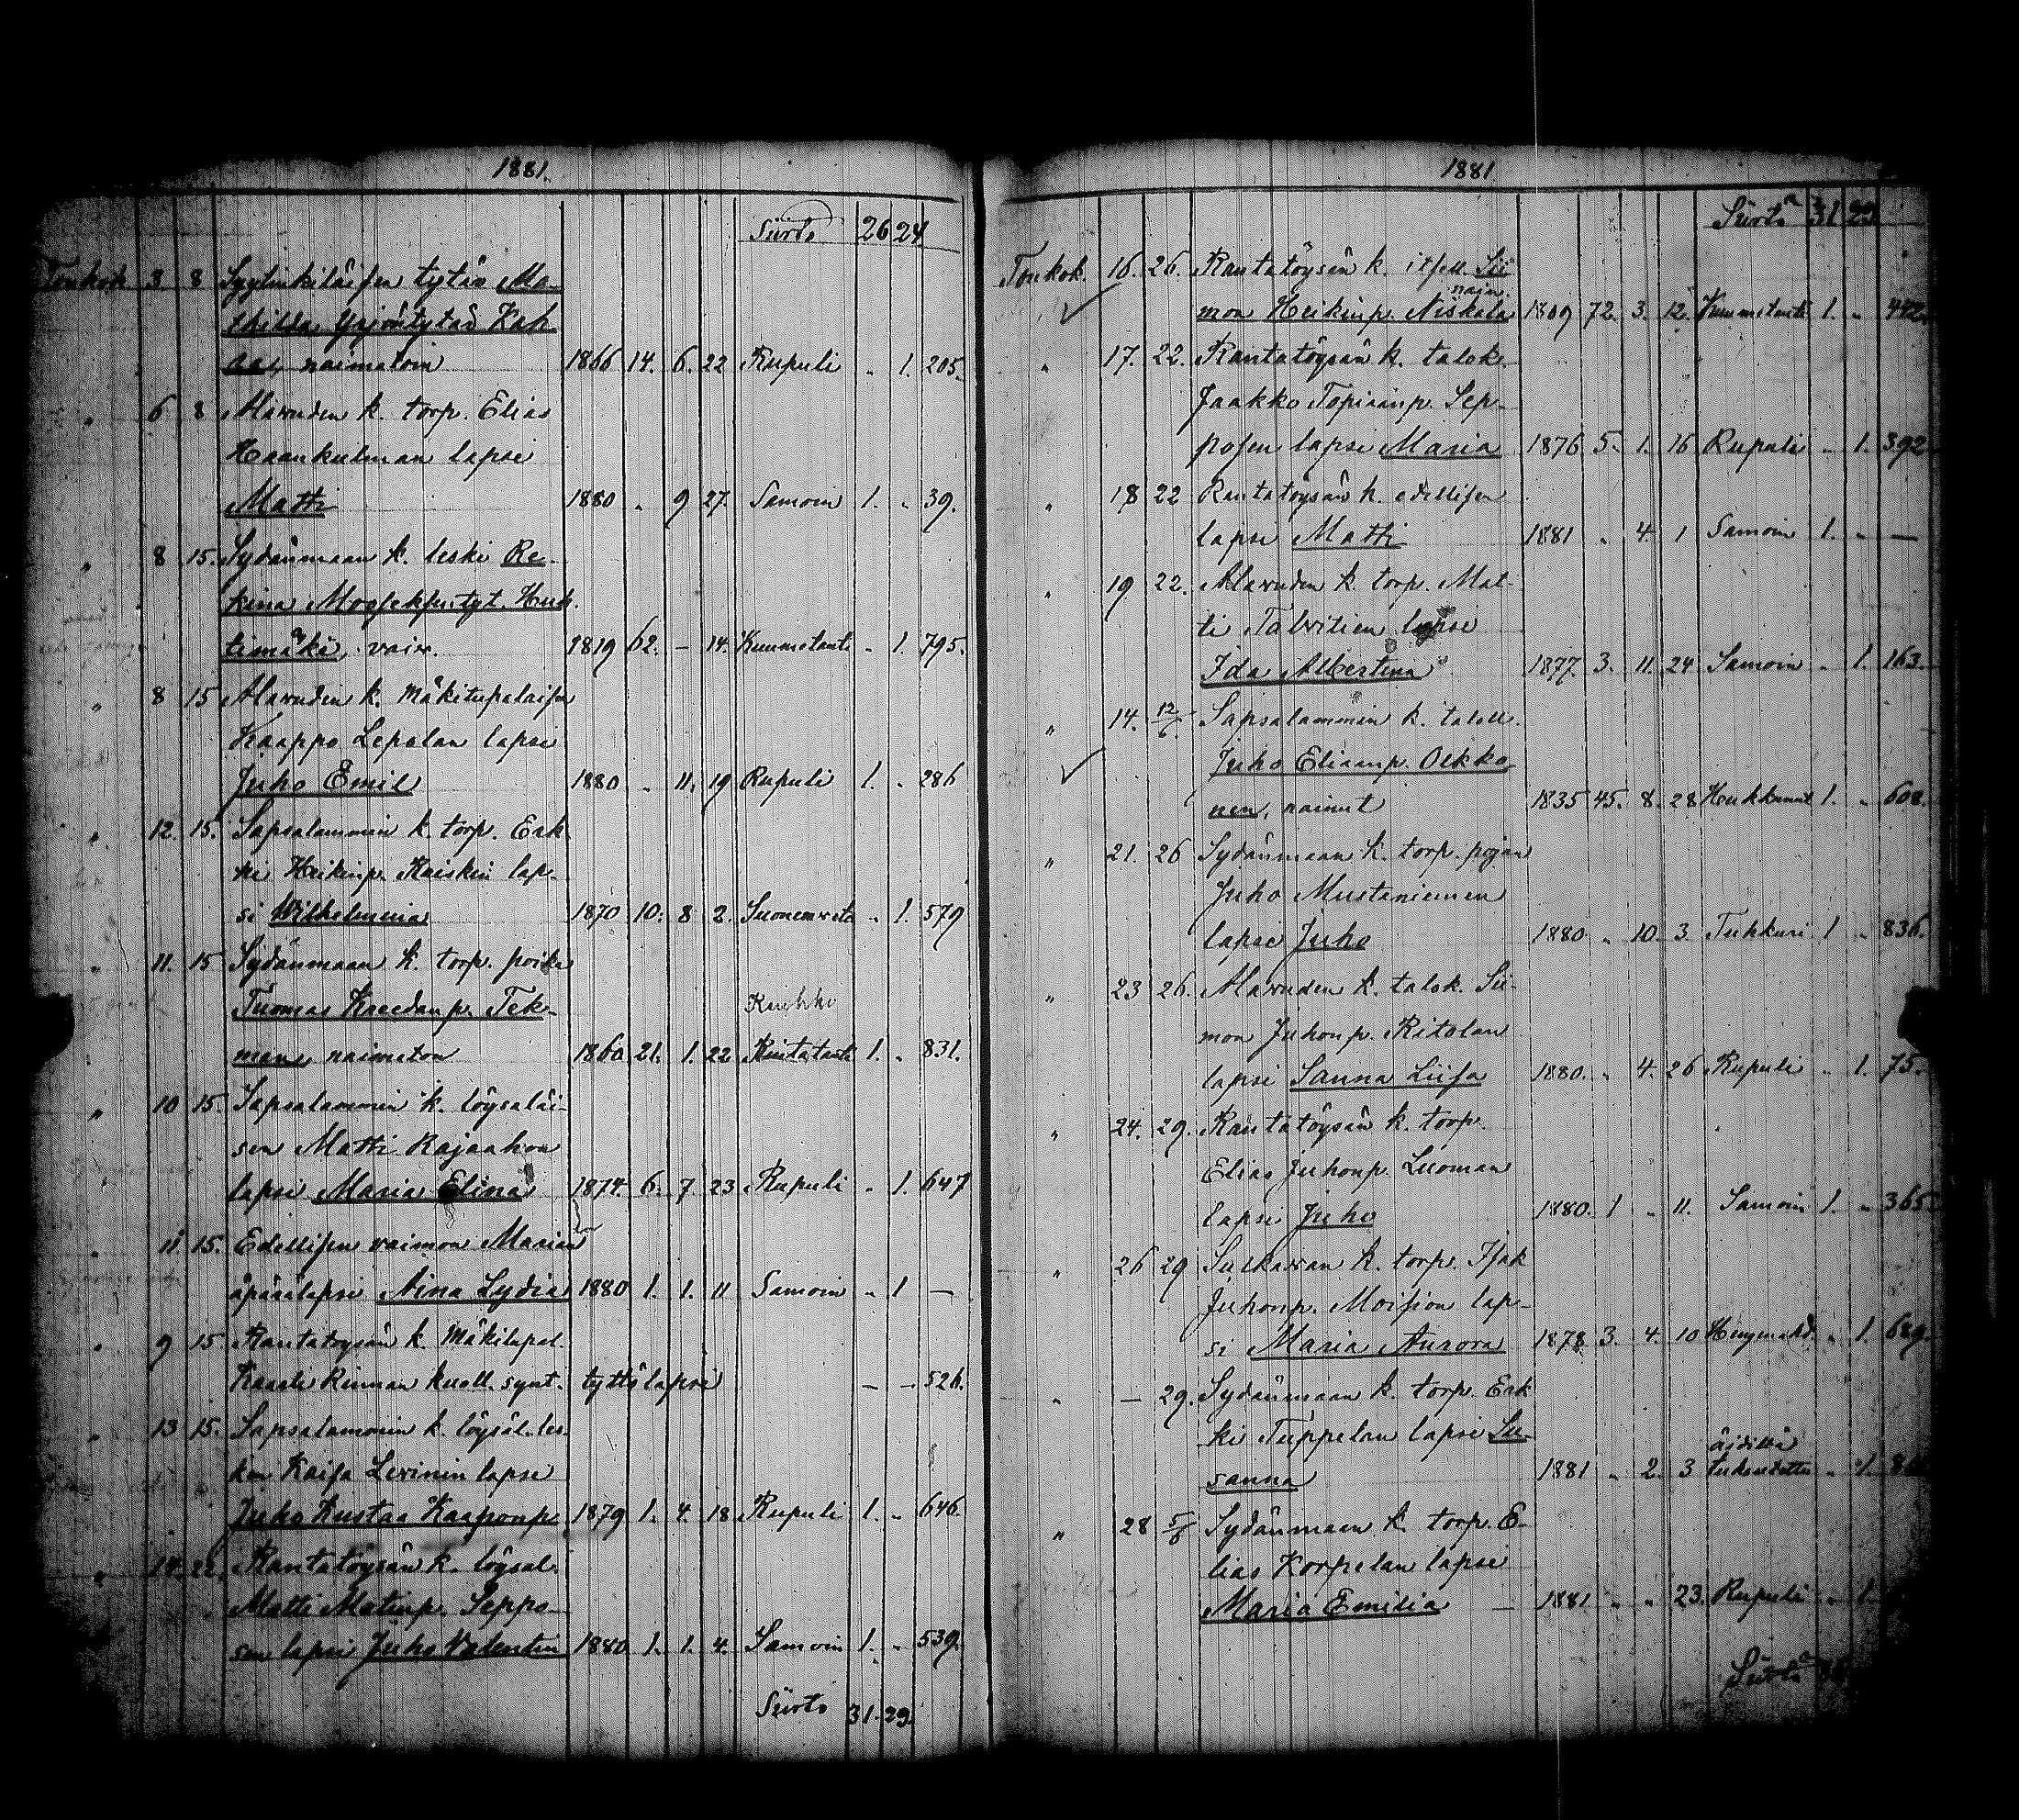 1881.
Siirto 26 24
Toukok. 3 8 Syytinkiläisen tytär Ma-
thilda Yrjöntytär Kah
naimatoin 1866 14. 6. 22 Rupuli „ 1. 205.
„ 6 8 Alavuden k. torp. Elias
Haankulman lapsi
Matti 1880 „ 9 27. Samoin 1. „ 39.
„ 8 15. Sydänmaan k. leski Re-
kina Mooseksentyt. Huh-
timäki, vaiv. 1819 62. – 14. Kummotauti „ 1. 795.
„ 8 15 Alavuden k. mäkitupalaisen
Kaappo Lepolan lapsi
Juho Emil 1880 „ 11. 19 Rupuli 1. „ 286
„ 12. 15. Sapsalammin k. torp. Erk-
ki Heikinp. Raiskin lap-
si Wilhelmina 1870 10. 8 2. „ 1. 579
„ 11. 15 Sydänmaan k. torp. poika
Tuomas Kreedanp. Tek- Keuhko
man, naimaton 1860 21. 1. 22 Rintatauti 1. „ 831.
„ 10 15. Sapsalammin k. löysäläi-
sen Matti Rajaahon
lapsi Maria Elina 1874. 6. 7. 23 Rupuli „ 1. 647
„ 11 15. Edellisen vaimon Marian
äpärälapsi Aina Lydia 1880 1. 1. 11 Samoin „ 1 —
„ 9 15 Rantatöysän k. Mäkitupal.
Kaarle Rinnan kuoll. synt. tyttölapsi — – 526.
„ 13 15. Sapsalammin k. löysäl. les-
ken Kaisa Levinin lapsi
Juho Kustaa Kaaponp. 1879 1. 4. 18 Rupuli 1. „ 646.
„ 14. 22. Rantatöysän k. löysäl.
Matti Matinp. Seppo-
sen lapsi Juho Valentin 1880 1. 1. 4. Samoin 1. „ 539.
Siirto 31. 29.
1881
Siirto 31 29
Toukok. 16. 26. Rantatöysän k. itsell. Sii
nain.
mon Heikinp. Niskala 1809 72. 3. 12. Kummotauti 1. „ 442.
„ 17. 22. Rantatöysän k. talok.
Jaakko Topiaanp. Sep-
posen lapsi Maria 1876 5. 1. 16 Rupuli „ 1. 392
„ 18 22 Rantatöysän k. edellisen
lapsi Matti 1881 „ 4. 1 Samoin 1. „ —
„ 19 22. Alavuden k. torp. Mat-
ti Talvitien lapsi
Ida Albertina 1877. 3. 11. 24 Samoin „ 1. 163.
„ 14. 12/6 Sapsalammin k. taloll.
Juho Eliaanp. Oikko
nen, nainut 1835 45. 8. 28 Hukkunut 1. „ 608.
„ 21. 26 Sydänmaan k. torp. pojan
Juho Mustaniemen
lapsi Juho 1880 „ 10. 3. Tuhkuri 1 „ 836.
„ 23 26. Alavuden k. talok. Sii-
mon Juhonp. Ritolan
lapsi Sanna Liisa 1880. „ 4. 26 Rupuli „ 1. 75.
„ 24. 29. Rantatöysän k. torp.
Elias Juhonp. Luoman
lapsi Juho 1880. 1 „ 11. Samoin 1. „ 365
„ 26 29 Sulkavan k. torp. Isak
Juhonp. Moision lap-
si Maria Aurora 1878 3. 4. 10 Hengenahd. „ 1. 689.
„ — 29. Sydänmaan k. torp. Erk
ki Tuppelan lapsi Su- äidiltä
sanna 1881 „ 2. 3 tukautettu „ 1.
„ 28 5/6 Sydänmaan k. torp. E-
lias Korpelan lapsi
Maria Emilia — 1881 „ „ 23. Rupuli „ 1.
Siirto